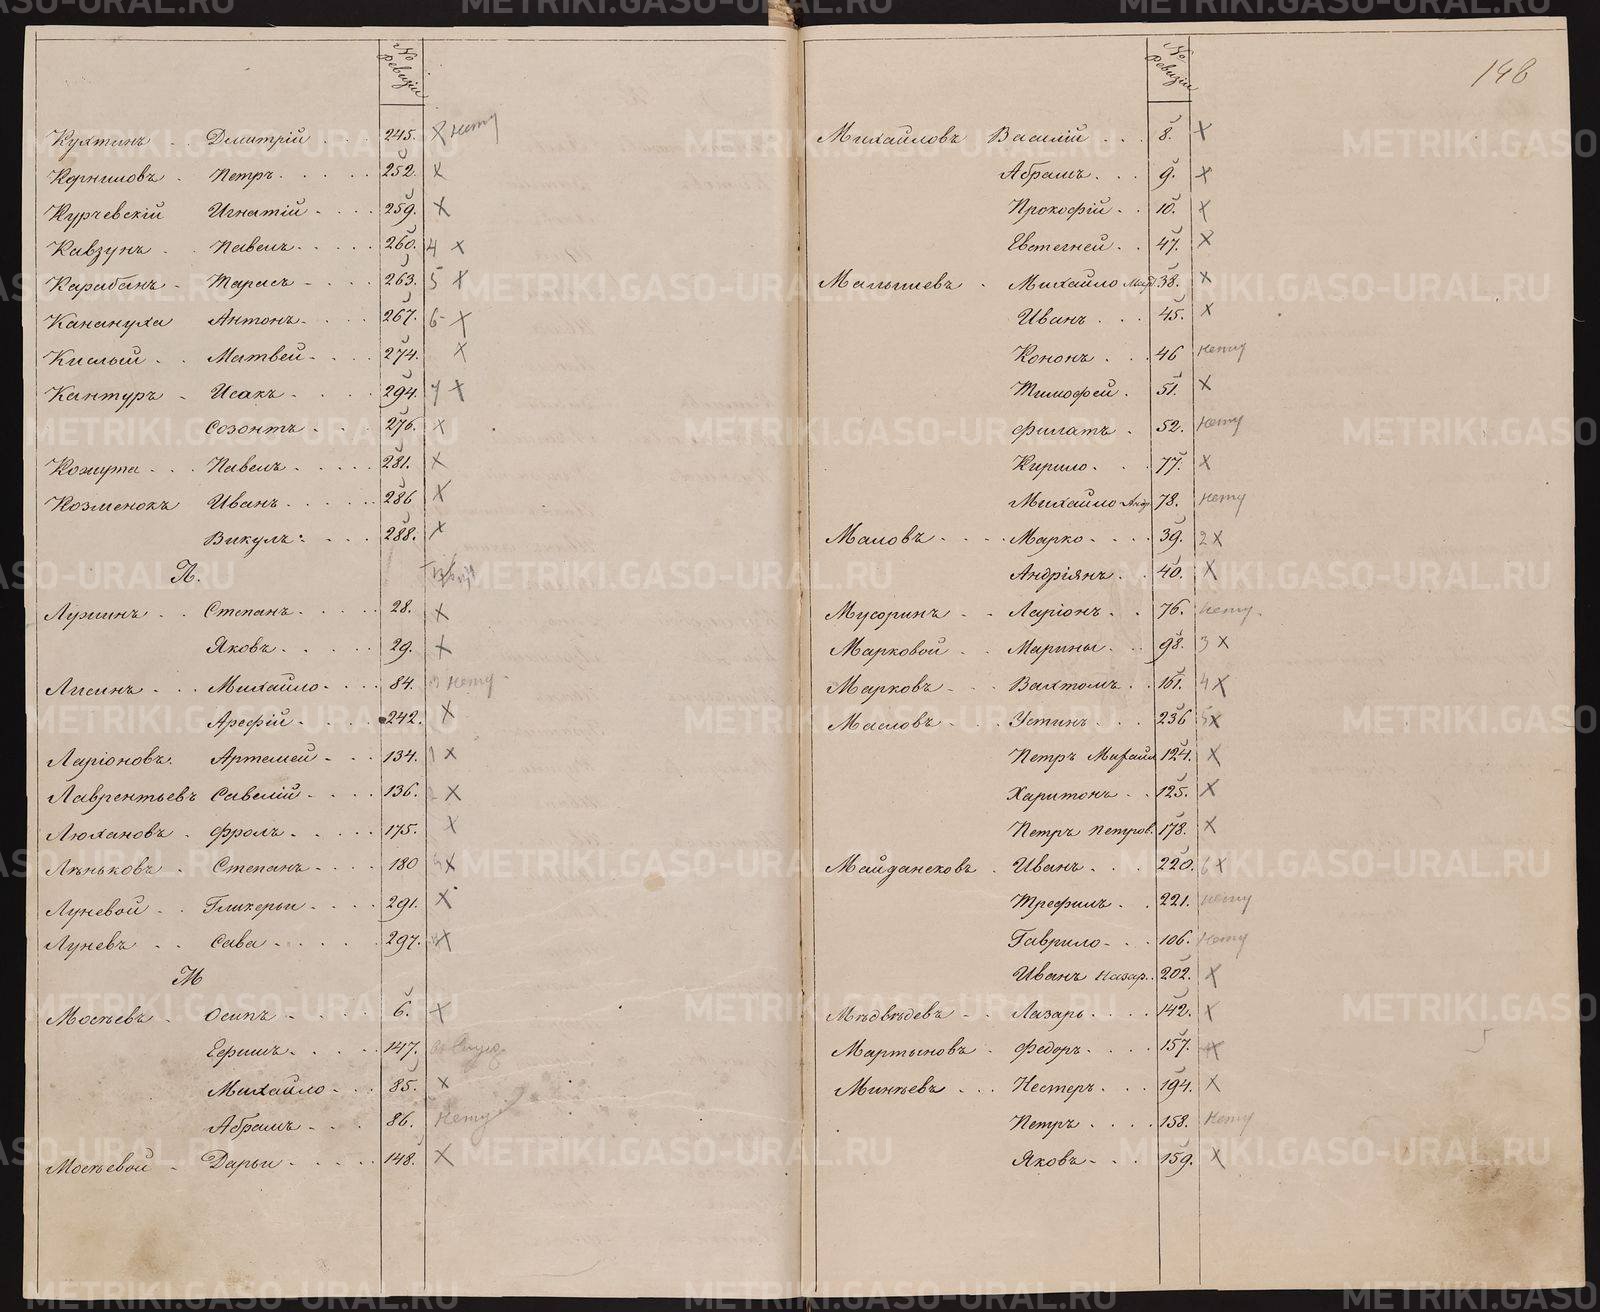 № ревизіи
Кухтинъ Дмитрій 245. нету
Корниловъ Петръ 252. X
Курчевскій Игнатій 259. X
Кавзунъ Павелъ 260. 4 X
Карабанъ Тарасъ 263. 5 X
Канануха Антонъ 267. 6 X
Кислый Матвей 274. X
Кантуръ Исакъ 294. 7 X
Созонтъ 276. X
Кожута Павелъ 281. X
Козменокъ Иванъ 286 X
Викулъ 288. X
Л.
Лунинъ Степанъ 28. X
Яковъ 29. X
Лисинъ Михайло 84. нету
Арефій 242. X
Ларіоновъ Артемей 134. 1 X
Лаврентьевъ Савелій 136. 2 X
Люхановъ Фролъ 175. X
Ляньковъ Степанъ 180 X
Луневой Гликерьи 291. X
Луневъ Сава 297. X
М
Мосѣевъ Осипъ 6. X
Ефимъ 147.
Михайло 85. X
Абрамъ 86. нету
Мосѣевой Дарьи 148. X
148
№ ревизіи
Михайловъ Василій 8. X
Абрамъ 9. X
Прокофій 10. X
Евстегней 47. X
Малышевъ Михайло Мар. 38. X
Иванъ 45. X
Кононъ 46 нету
Тимофей 51. X
Филатъ 52. нету
Кирило 77. X
Михайло 78. нету
Маловъ Марко 39. 2 X
Андріянъ 40. X
Мусоринъ Ларіонъ 76. нету
Марковой Марины 98. 3 X
Марковъ Вахтомъ 161. 4 X
Масловъ Устинъ 236 5 X
Петръ Михайл 124. X
Харитонъ 125. X
Петръ Петров. 178. X
Майдансковъ Иванъ 220. 6 X
Трефилъ 221. нету
Гаврило 106. нету
Иванъ Назар. 202. X
Мѣдвѣдевъ Лазарь 142. X
Мартыновъ Федоръ 157. X
Минѣевъ Нестеръ 194. X
Петръ 158. нету
Яковъ 159. X
METRIKI.GASO-URAL.RU